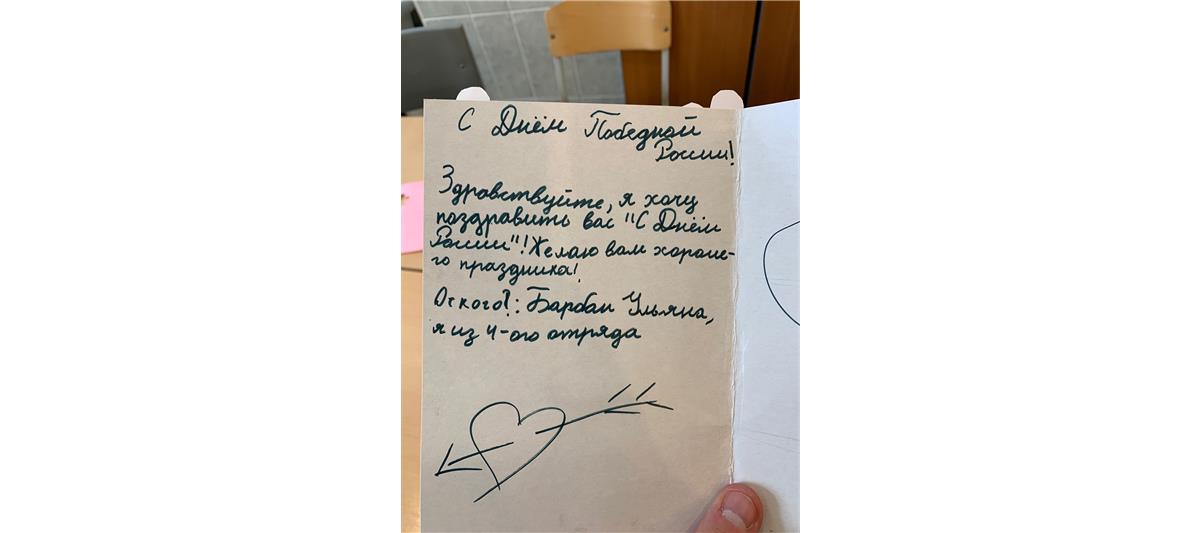 С Днём Победной
России!
Здравствуйте, я хочу
поздравить вас "С Днём
России"! Желаю вам хороше-
го праздника!
От кого?: Барбан Ульяна,
я из 4-ого отряда